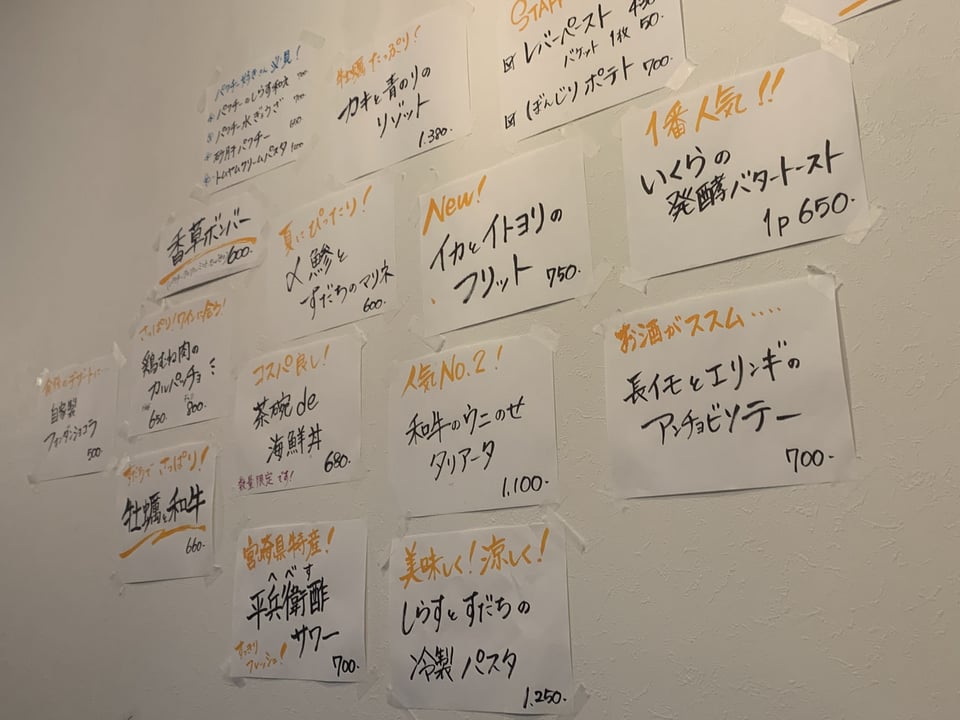 パクチー好きさん必見!
パクチーのしらす和え 700
パクチー水ぎょうざ 700
砂肝パクチー
トムヤムクリームパスタ
牡蠣たっぷり!
カキと青のりの
リゾット
1.380.
STAFF
レバーペースト 450
バケット 1枚 50.
ぼんじりポテト 700.
1番人気!!
いくらの
発酵バタートースト
1p 650.
香草ボンバー
600.
夏にぴったり!
〆鯵と
すだちのマリネ
600.
New!
イカとイトヨリの
フリット 750.
さっぱり!ワインに合う!
鶏むね肉の
カルパッチョ
650 800.
自家製
フォンダンショコラ
500
コスパ良し!
茶碗de
海鮮丼
680.
数量限定です!
人気No.2!
和牛のウニのせ
タリアータ
1.100.
お酒がススム・・・・
長イモとエリンギの
アンチョビソテー
700.
すだちでさっぱり!
牡蠣と和牛
660.
宮崎県特産!
へべす
平兵衛酢
サワー
すっきり
フレッシュ!
700.
美味しく!涼しく!
しらすとすだちの
冷製パスタ
1.250.